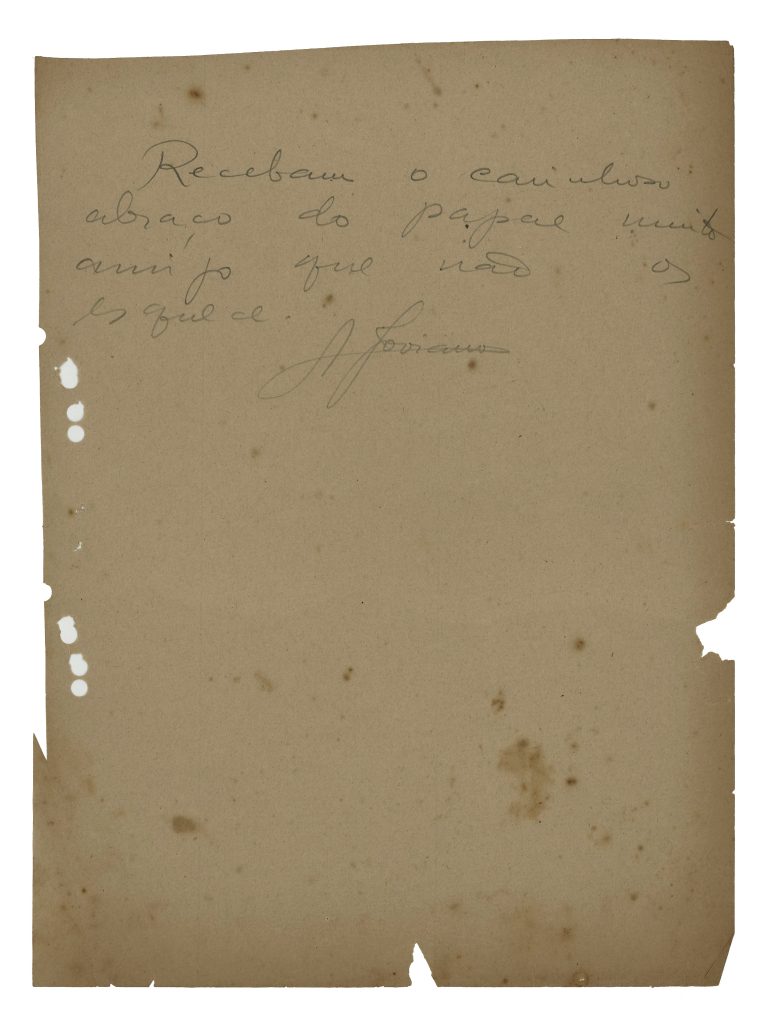 Recebam o carinhoso
abraço do papae muito
amigo que não os
esquece.
A Joviano